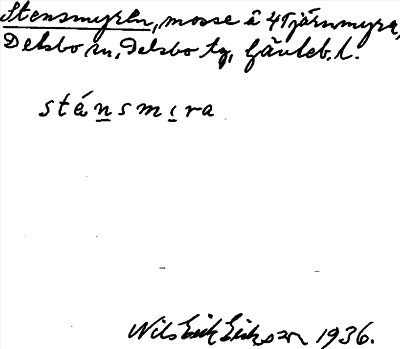 Stensmyreln, mosse å 4 Tjärnmyra,
Delsbo sn, Delsbo tg, Gävleb. l.
sténsmira
Nils Erik Eriksson 1936.